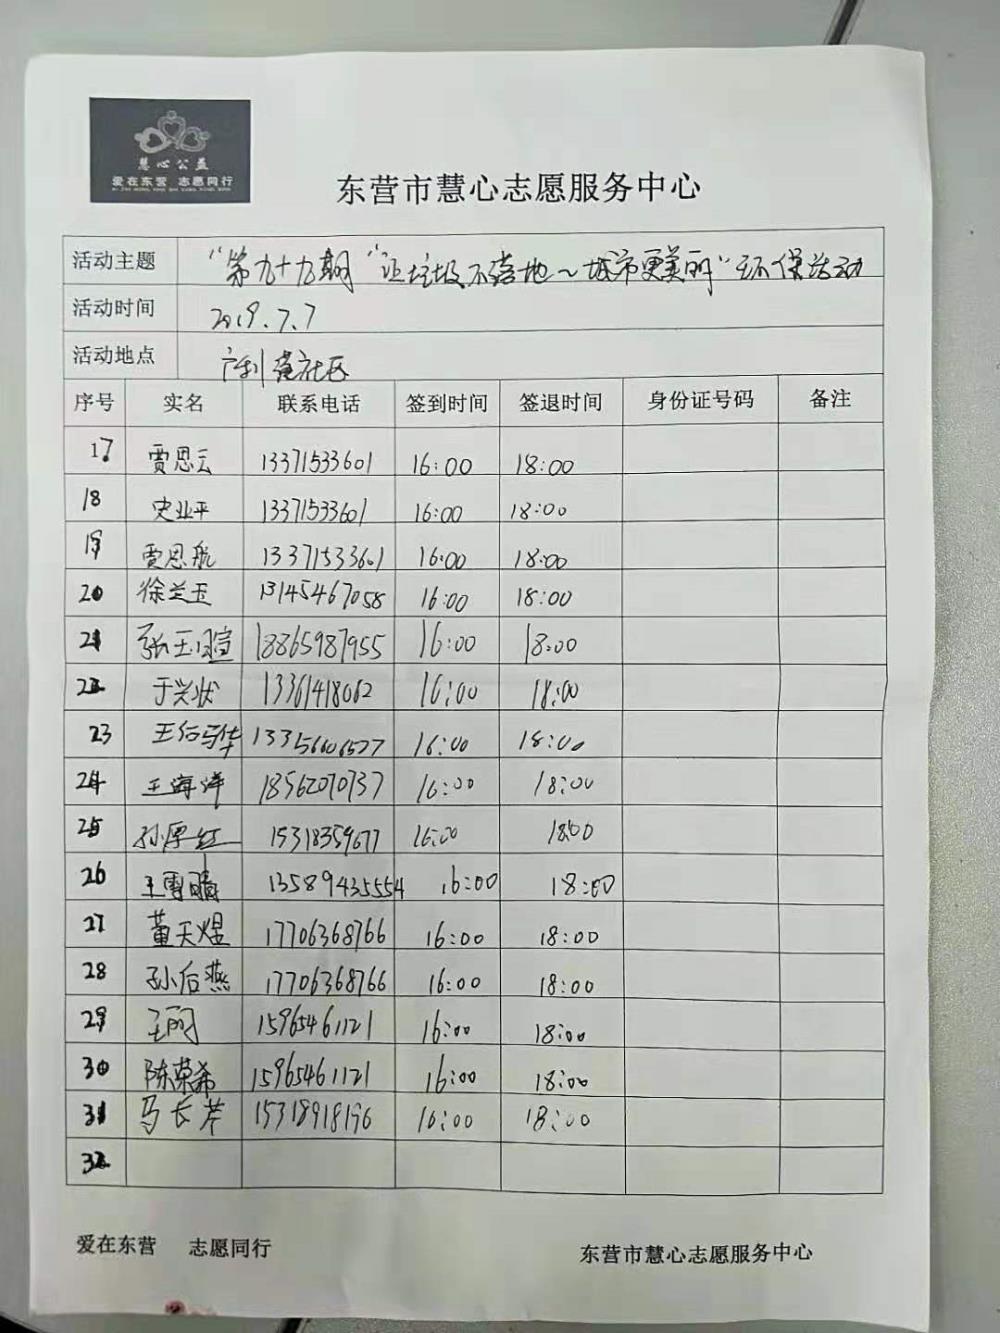 慧心公益
爱在东营 志愿同行
东营市慧心志愿服务中心
活动主题 "第九十九期"让垃圾不落地~城市更美丽"环保活动
活动时间 2019.7.7
活动地点 广利港社区
序号 实名 联系电话 签到时间 签退时间 身份证号码 备注
17 贾思云 13371533601 16:00 18:00
18 史业平 13371533601 16:00 18:00
19 贾思航 13371533601 16:00 18:00
20 徐兰玉 13145467058 16:00 18:00
21 张玉暄 18865987955 16:00 18:00
22 于兴状 13361418062 16:00 18:00
23 13356606527 16:00 18:00
24 王海洋 18562070737 16:00 18:00
25 孙厚红 15318359677 16:00 1800
26 王雪晴 13589435554 16:00 18:00
27 董天煜 17706368766 16:00 18:00
28 孙后燕 17706368766 16:00 18:00
29 王丽 15965461121 16:00 18:00
30 陈荣希 15965461121 16:00 18:00
31 马长芹 15318918196 16:00 18:00
32
爱在东营 志愿同行 东营市慧心志愿服务中心